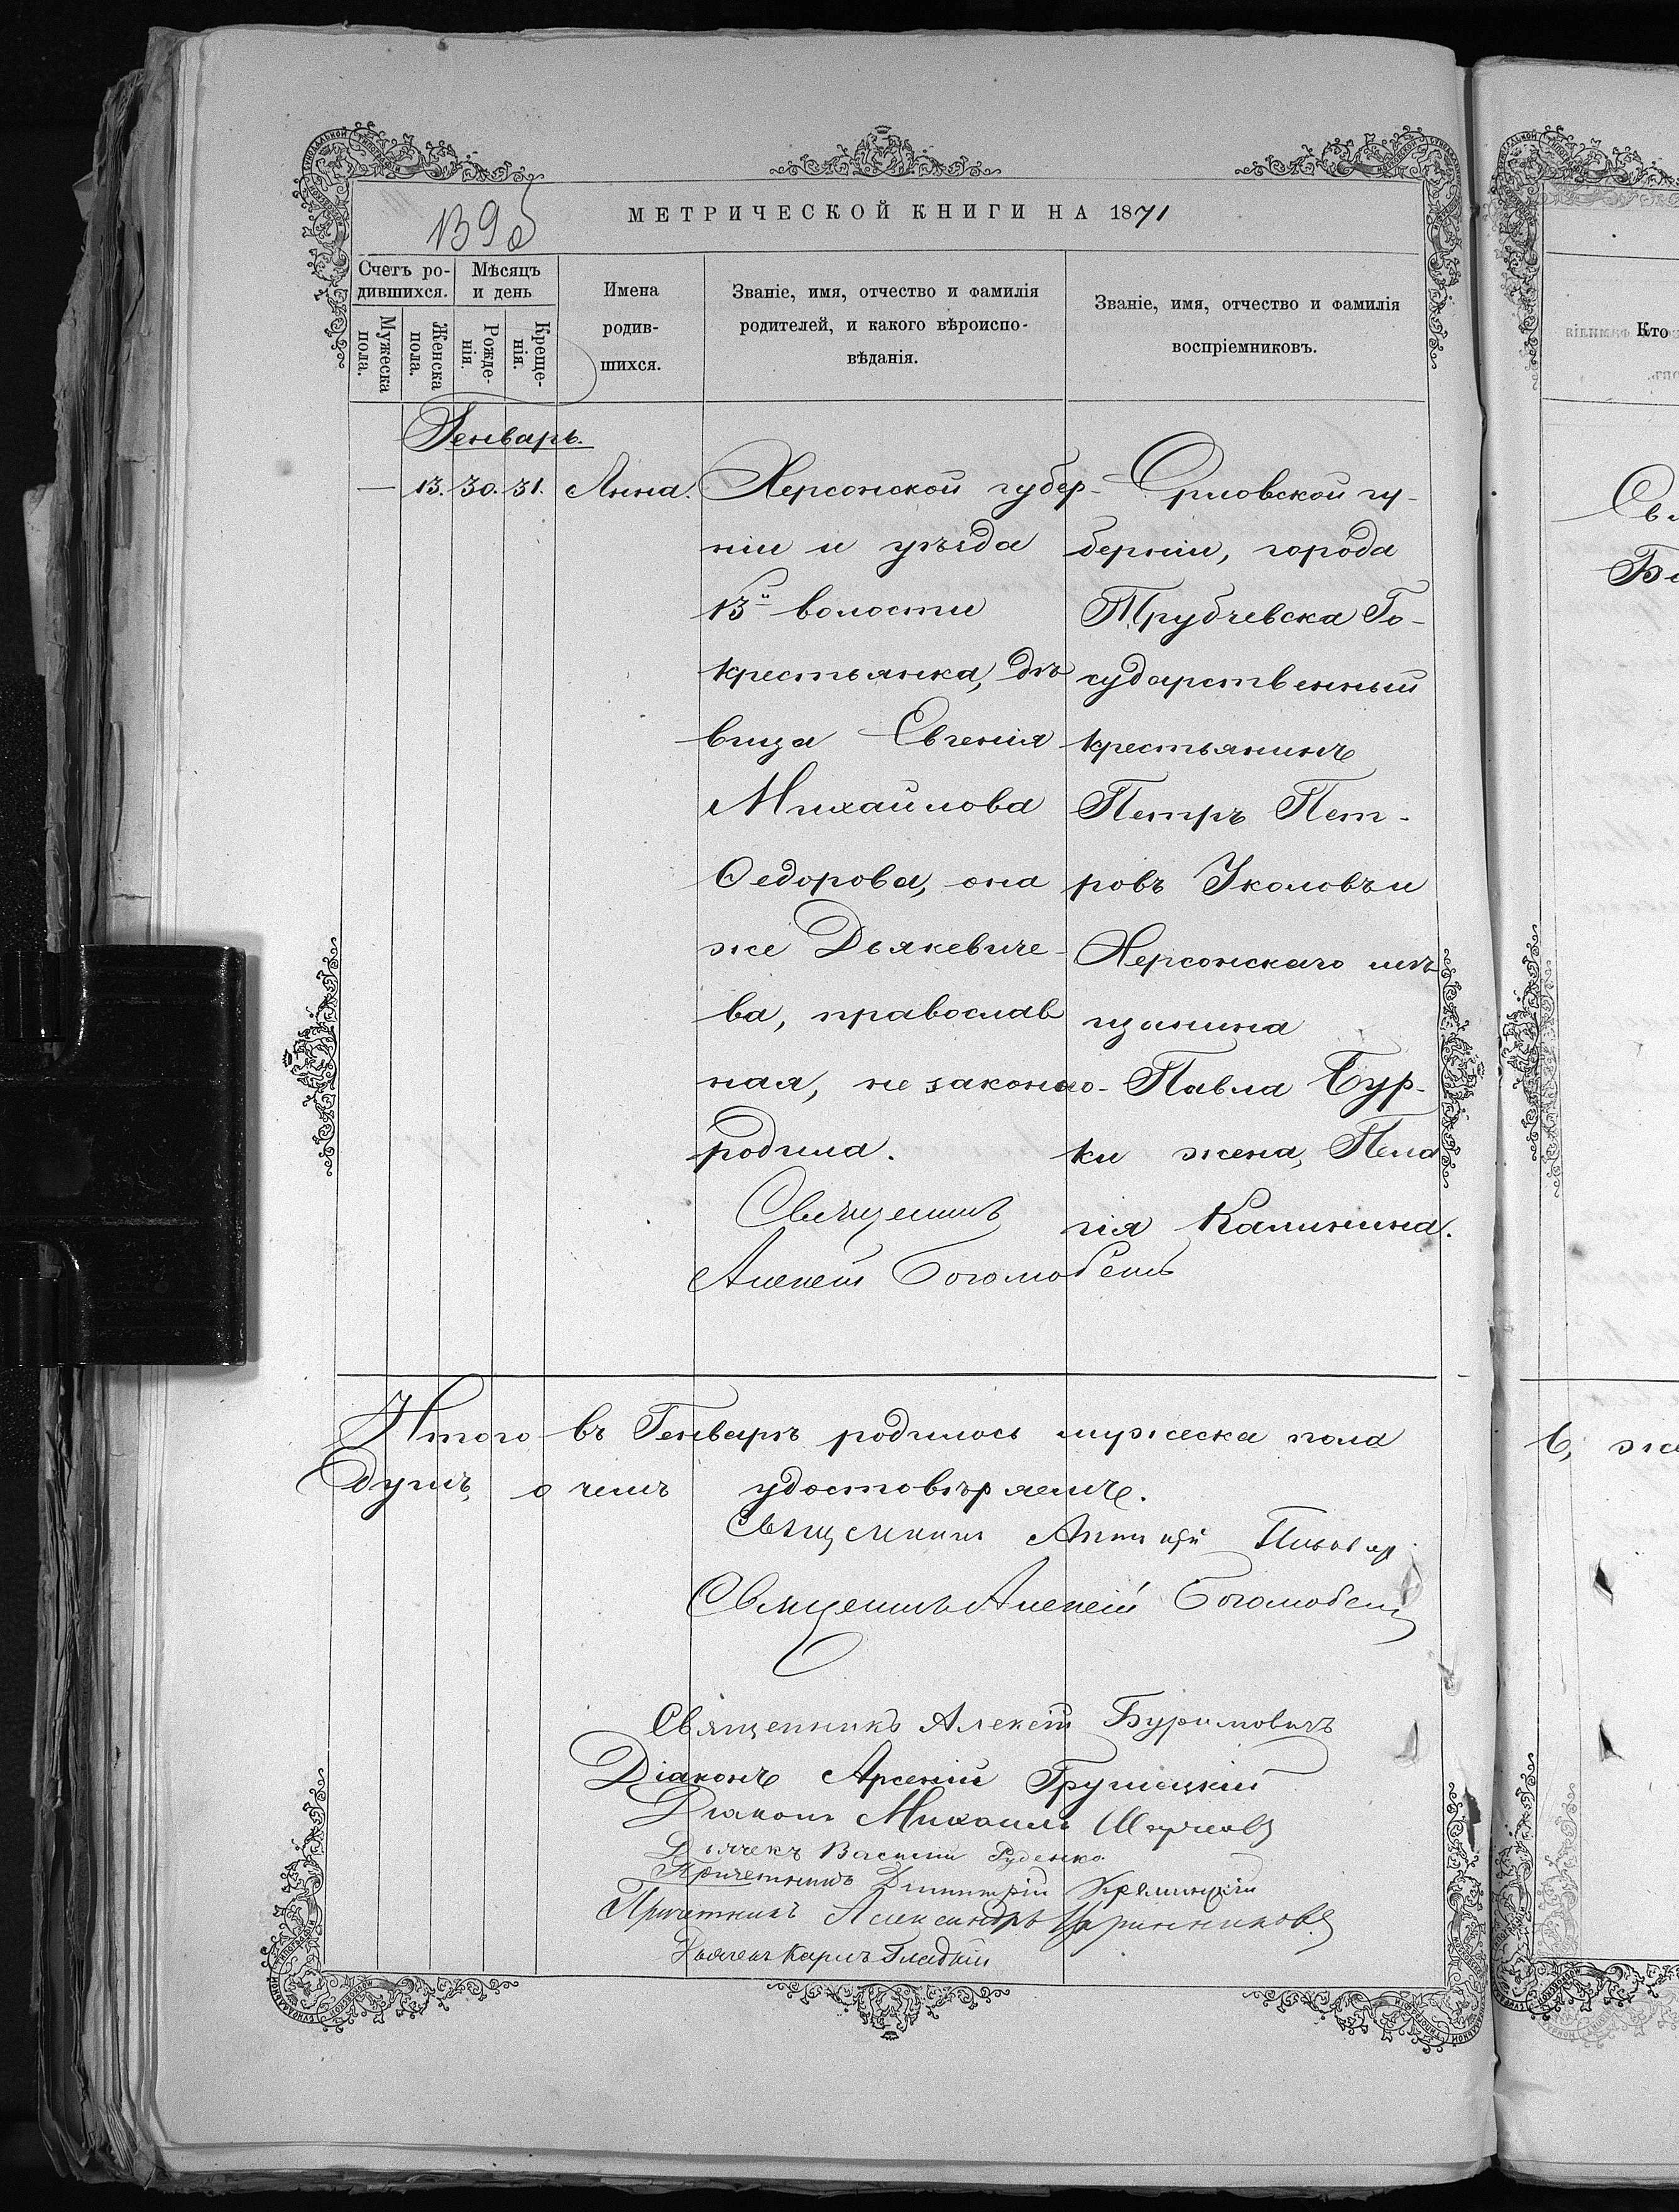 МЕТРИЧЕСКОЙ КНИГИ НА 1871
Счетъ ро-
дившихся.
Мѣсяцъ
и день
Мужеска
пола.
Женска
пола.
Рожде-
нія.
Креще-
нія.
Имена
родив-
шихся.
Званіе, имя, отчество и фамилія
родителей, и какого вѣроиспо-
вѣданія.
Званіе, имя, отчество и фамилія
воспріемниковъ.
Генварь.
— 13. 30. 31. Анна.
Херсонской губер-
ніи и уѣзда
13й волости
крестьянка, дѣ
вица Евгенія
Михайлова
Ѳедорова, она
же Дьякевиче-
ва, православ
ная, не законно-
родила.
Священникъ
Алексій Боголюбовъ
Орловской гу-
берніи, города
Трубчевска Го-
сударственный
крестьянинъ
Петръ Пет-
ровъ Уколовъ и
Херсонскаго мѣ
щанина
Павла Бур-
ки жена, Пела
гія Калинина.
Итого въ Генварѣ родилось мужеска пола
душъ, о чемъ удостовѣряемъ.
Священникъ
Священникъ Алексій
Священникъ Алексій Буримовичъ
Діаконъ Арсеній Грушецкій
Діаконъ Михаилъ
Дьячекъ Василій Руденко
Причетникъ Димитрій
Причетникъ Александръ
Дьячекъ Карпъ Гладкій
Кто